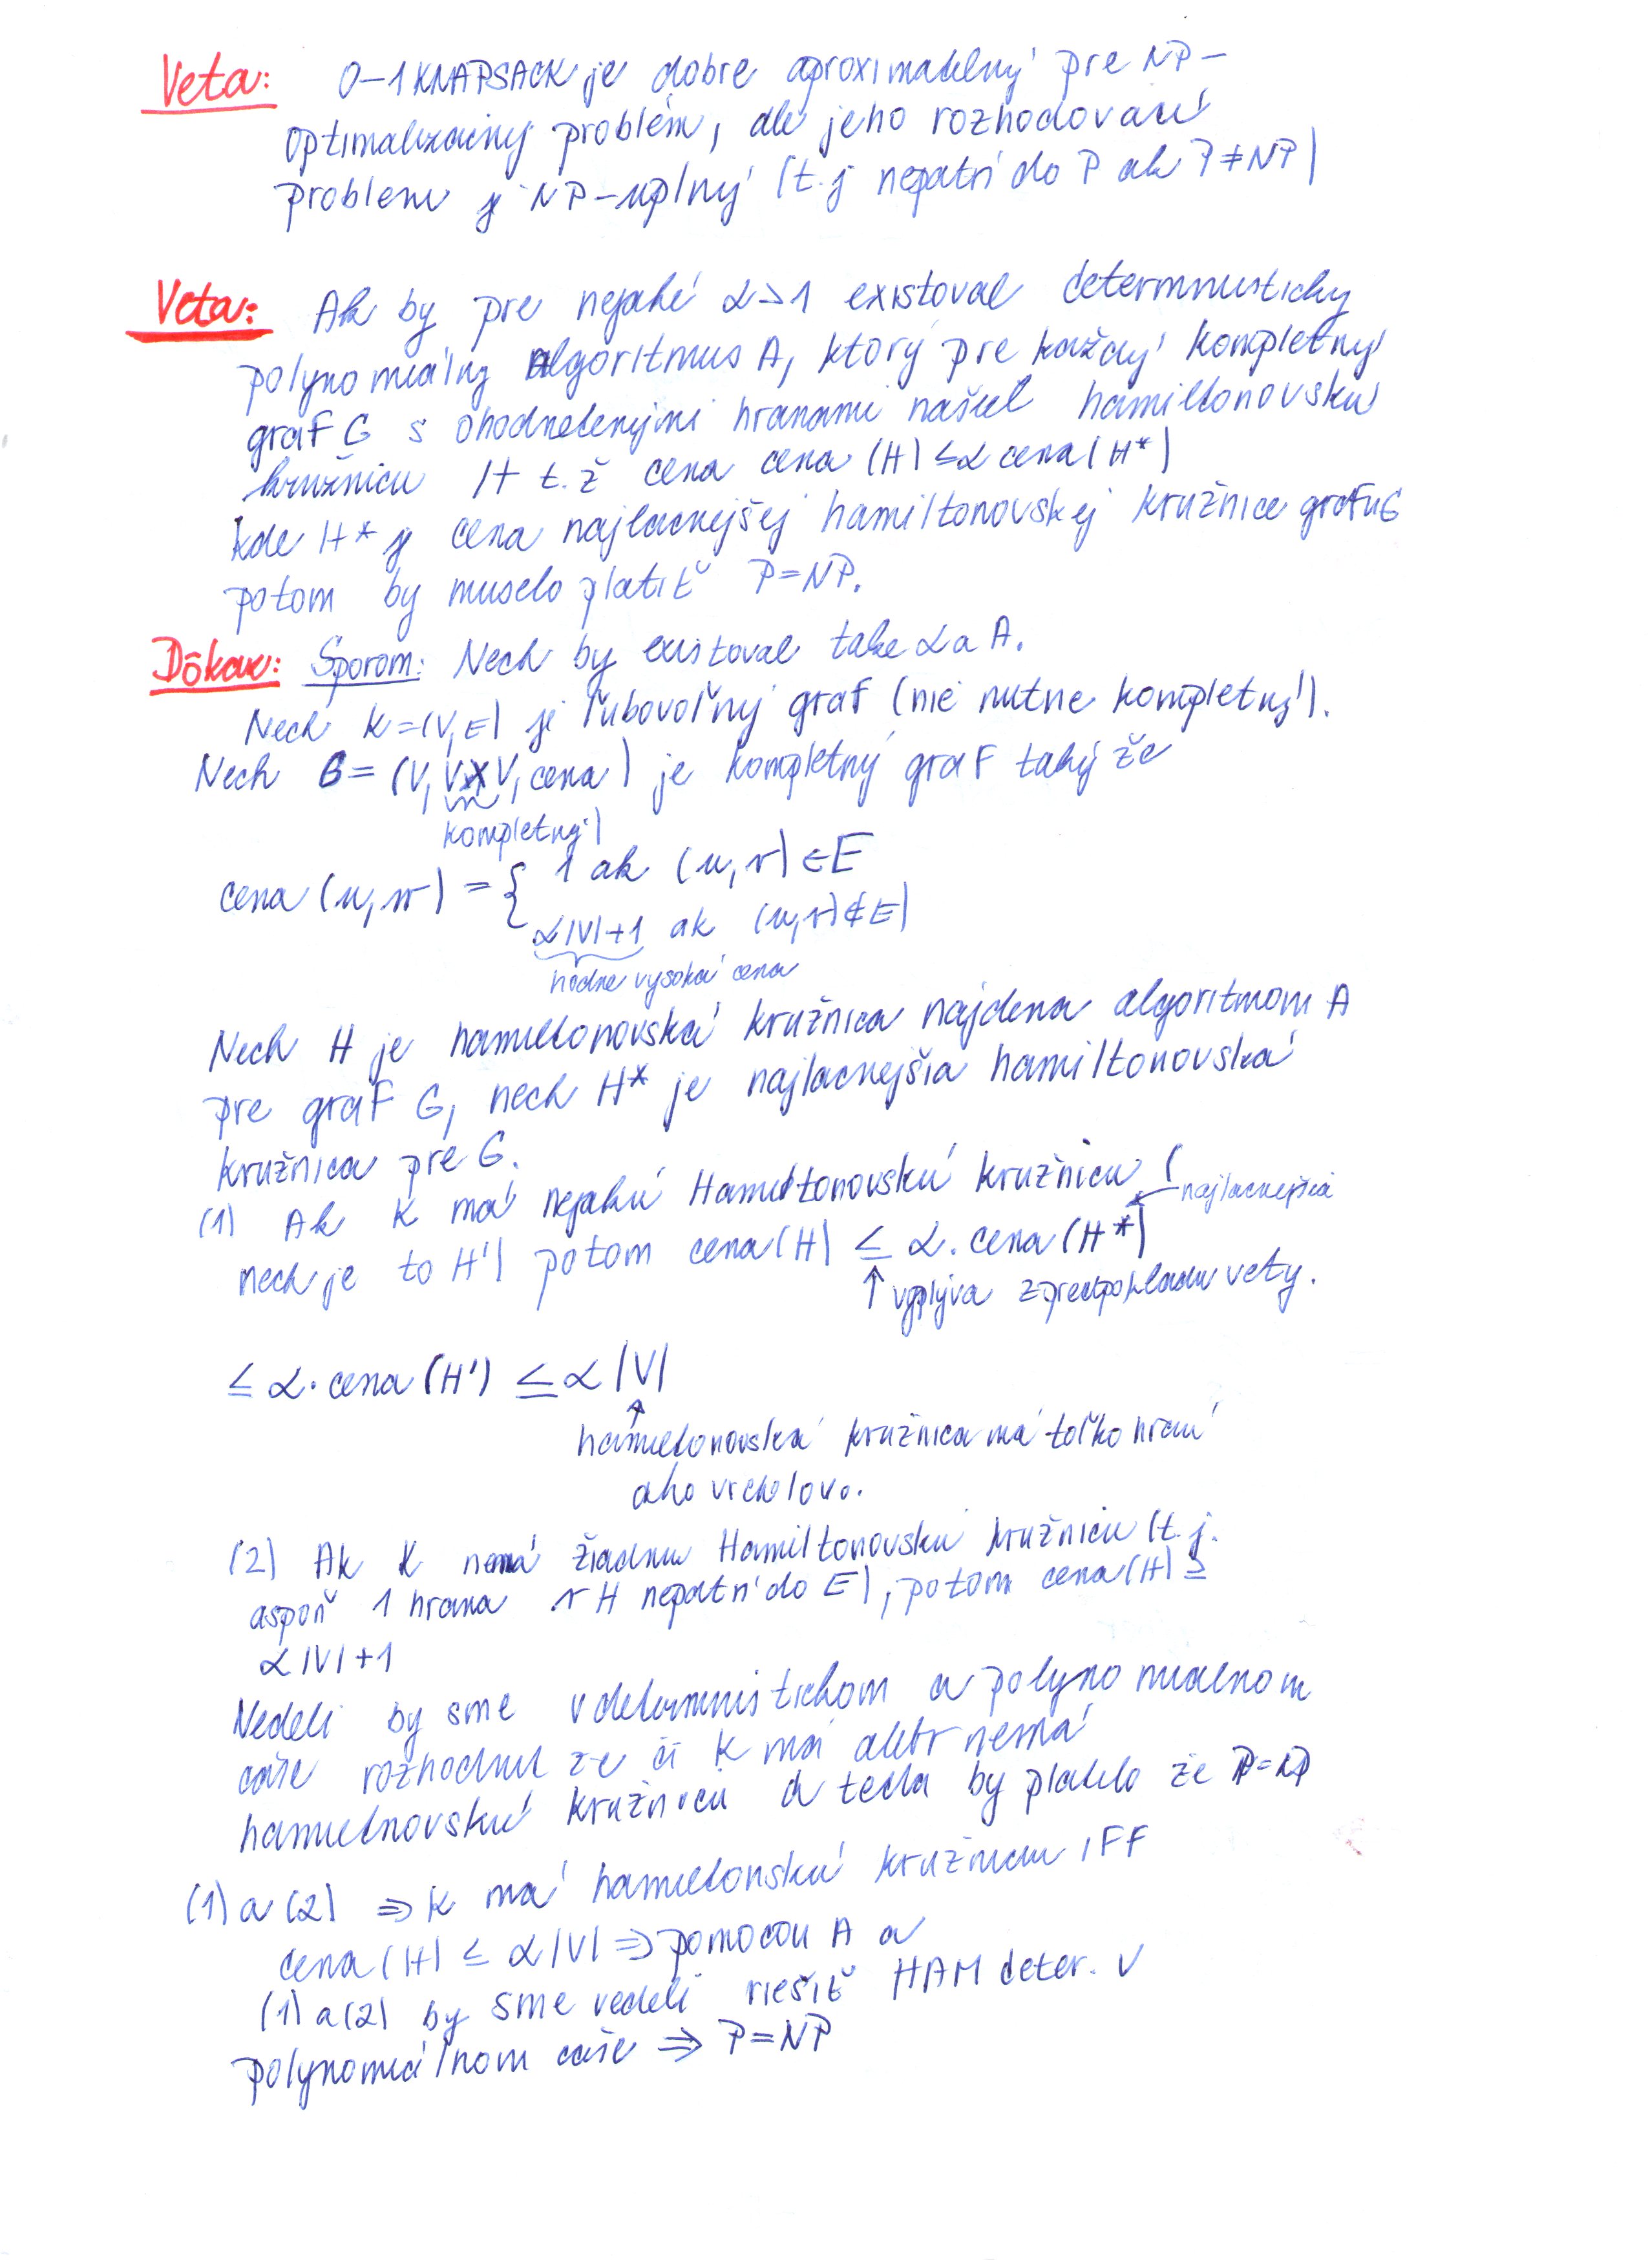 Veta: 0-1 KNAPSACK je dobre aproximatelný pre NP-
optimalizačný problém, ale jeho rozhodovací
problem je NP-uplný (t.j nepatrí do P ak P≠NP)
Veta: Ak by pre nejaké α>1 existoval deterministicky
polynomiálny Algoritmus A, ktorý pre každý kompletný
graf G s ohodnotenými hranami našiel hamiltonovskú
kružnicu H t.ž cena cena (H) ≤ α cena (H*)
kde H* je cena najlacnejšej hamiltonovskej kružnice grafu G
potom by muselo platiť P=NP.
Dôkaz: Sporom: Nech by existoval take α a A.
Nech K=(V,E) je ľubovoľný graf (nie nutne kompletný).
Nech G = (V, V×V, cena) je kompletný graf taký že
kompletný
cena (u,v) = { 1 ak (u,v) ∈ E
α|V|+1 ak (u,v) ∉ E)
hodne vysoká cena
Nech H je hamiltonovská kružnica najdena algoritmom A
pre graf G, nech H* je najlacnejšia hamiltonovská
kružnica pre G.
(1) Ak K má nejakú Hamiltonovskú kružnicu (
najlacnejšia
nech je to H') potom cena (H) ≤ α. cena (H*)
↑ vyplýva z predpokladu vety.
≤ α. cena (H') ≤ α |V|
↑
hamiltonovská kružnica má toľko hrán
ako vrcholov.
(2) Ak K nemá žiadnu Hamiltonovsku kružnicu (t.j.
aspoň 1 hrana v H nepatrí do E), potom cena (H) ≥
α |V| +1
Vedeli by sme v deterministickom a polynomialnom
čase rozhodnut že či K má alebo nemá
hamiltnovskú kružnicu a teda by platilo že P=NP
(1) a (2) ⇒ K má hamiltonskú kružnicu IFF
cena (H) ≤ α |V| ⇒ pomocou A a
(1) a (2) by sme vedeli riešiť HAM deter. v
polynomiálnom čase ⇒ P=NP